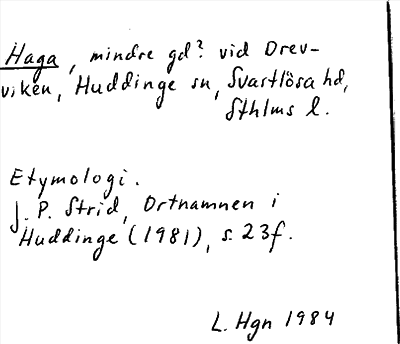 Haga, mindre gd? vid Drev-
viken, Huddinge sn, Svartlösa hd,
Sthlms l.
Etymologi.
J. P. Strid, Ortnamnen i
Huddinge (1981), s. 23f.
L. Hgn 1984